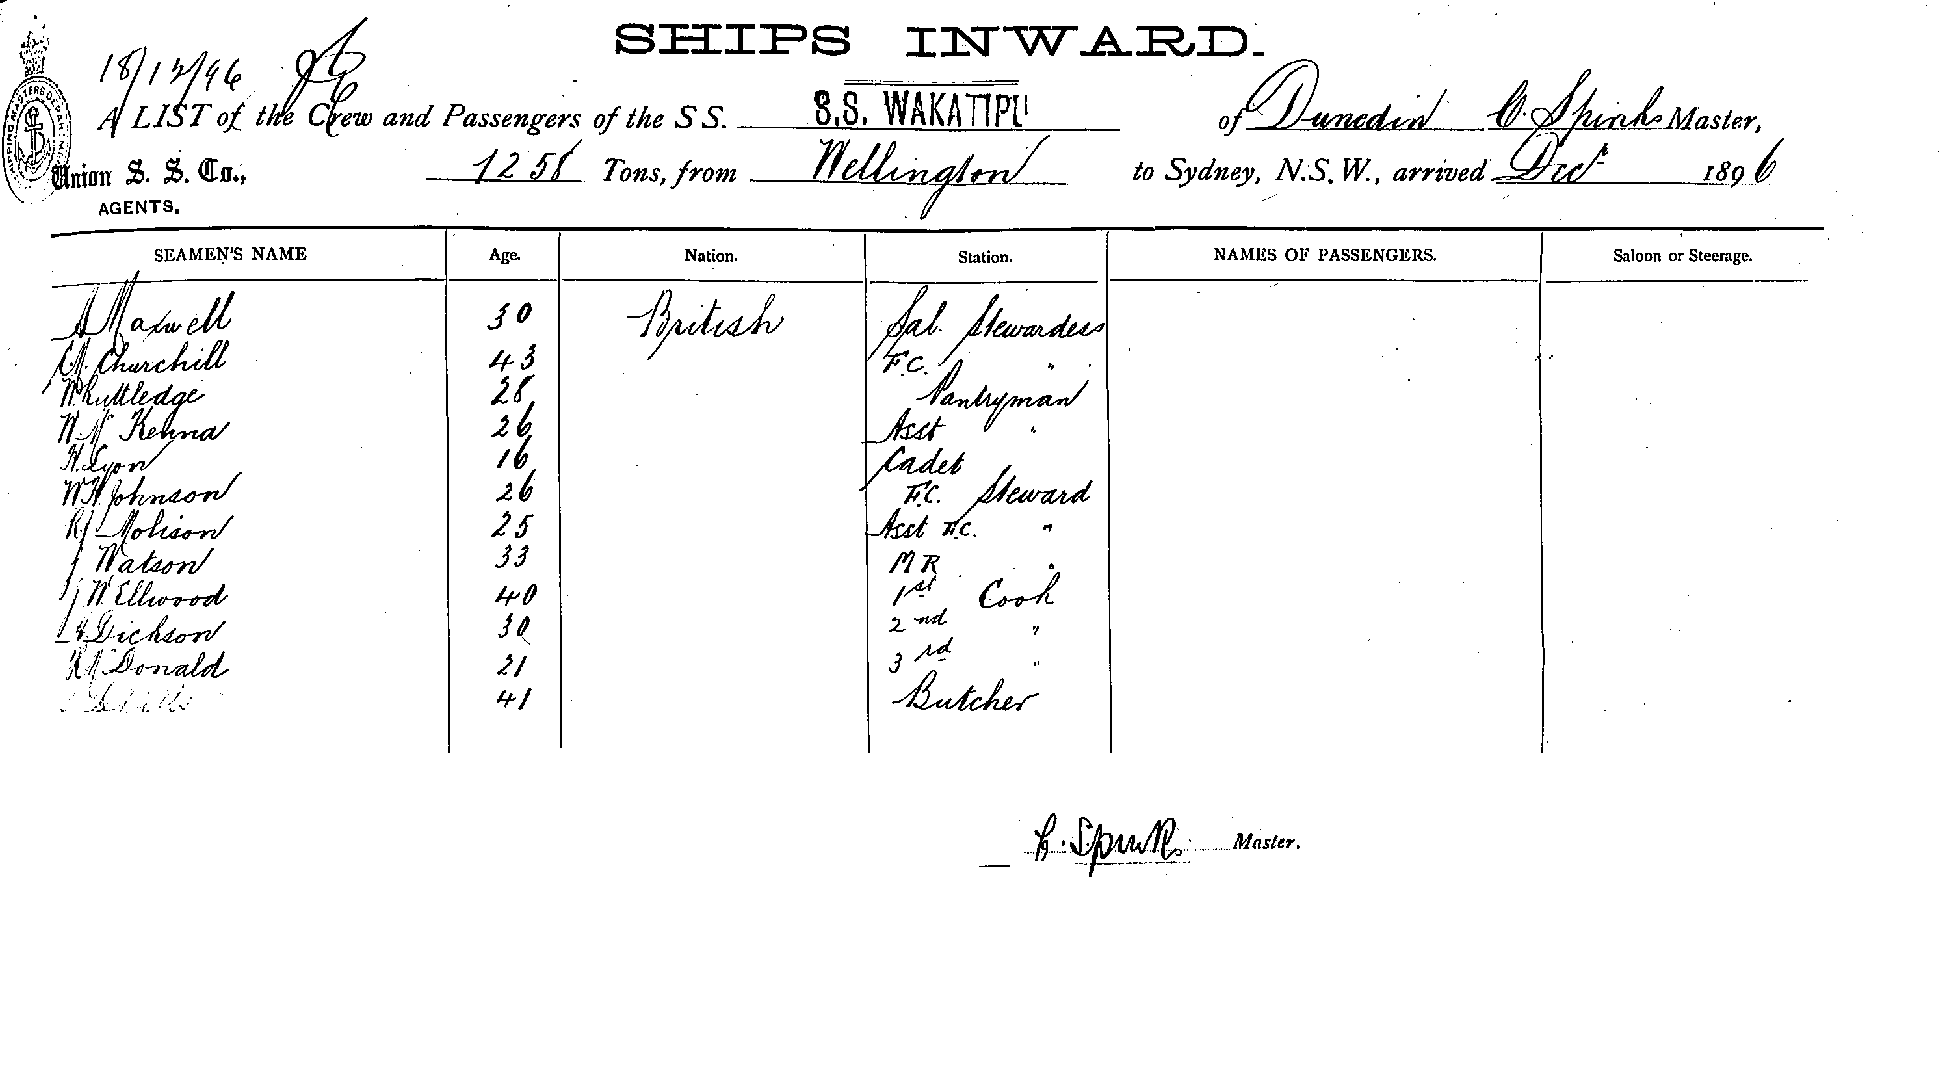 SHIPS INWARD.
18/12/96
A LIST of the Crew and Passengers of the S S. S.S. WAKATIPU of Dunedin C. Spinks Master,
Union S. S. Co., 1258 Tons, from Wellington to Sydney, N.S.W., arrived Decr 1896
AGENTS.
SEAMEN'S NAME Age. Nation. Station. NAMES OF PASSENGERS. Saloon or Steerage.
Maxwell 30 British Sal. Stewardess
Churchill 43 F.C. "
Ruttledge 28 Pantryman
W McKenna 26 Asst "
H. Lyon 16 Cadet
W H Johnson 26 F.C. Steward
R J Molison 25 Asst F.C. "
J Watson 33 M R "
J W Ellwood 40 1st Cook
Dickson 30 2nd "
McDonald 21 3rd "
41 Butcher
C. Spinks Master.